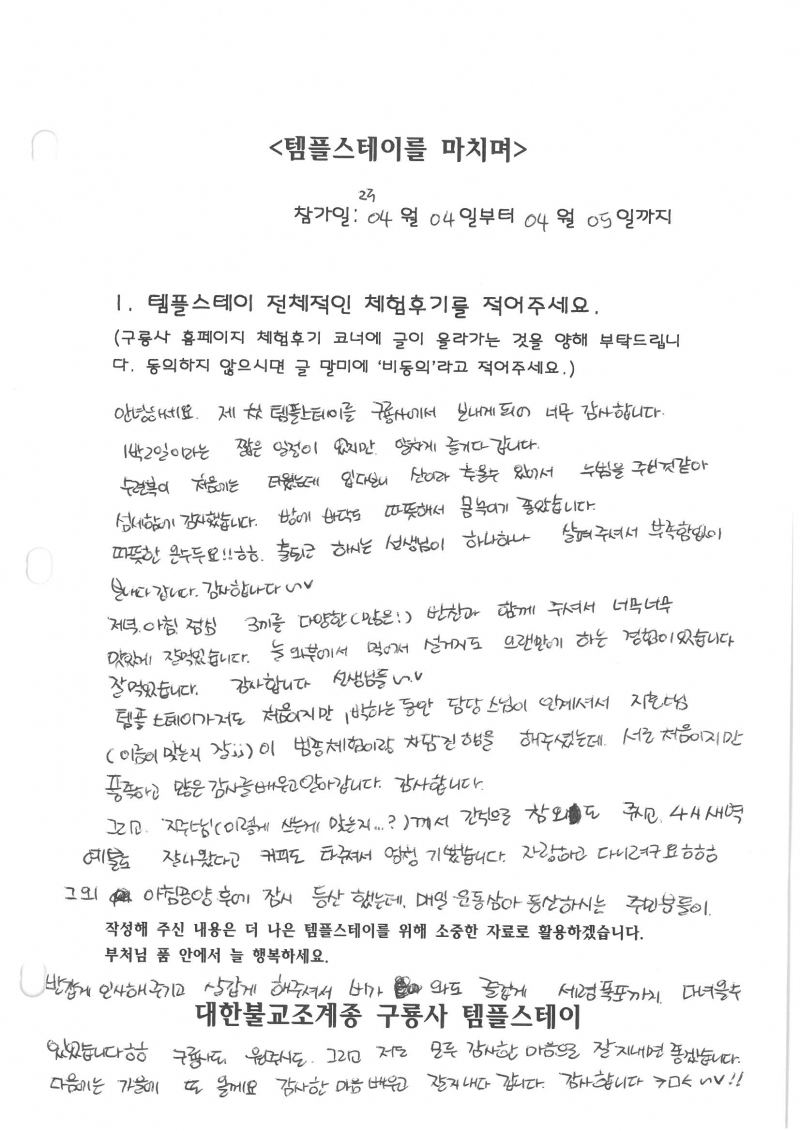 <템플스테이를 마치며>
23
참가일: 04 월 04 일부터 04 월 05 일까지
1. 템플스테이 전체적인 체험후기를 적어주세요.
(구룡사 홈페이지 체험후기 코너에 글이 올라가는 것을 양해 부탁드립니
다. 동의하지 않으시면 글 말미에 '비동의'라고 적어주세요.)
안녕하세요. 제 첫 템플스테이를 구룡사에서 보내게 되어 너무 감사합니다.
1박2일이라는 짧은 일정이 있지만 알차게 즐기다 갑니다.
수련복이 처음에는 더웠는데 입다보니 산이라 추울수 있어서 누빔을 주신것같아
섬세함에 감사했습니다. 방에 바닥도 따뜻해서 몸녹이기 좋았습니다.
따뜻한 온수두요!!ㅎㅎ. 출퇴근 하시는 선생님이 하나하나 살펴주셔서 부족함없이
보내다 갑니다. 감사합니다~v
저녁.아침.점심 3끼를 다양한(많은!) 반찬과 함께 주셔서 너무너무
맛있게 잘먹었습니다. 늘 외부에서 먹어서 설거지도 오랜만에 하는 경험이었습니다
잘먹었습니다. 감사합니다 선생님들~v
템플스테이가 저도 처음이지만 1박하는 동안 담당스님이 안계셔서
(이름이 맞는지 잘;;)이 범종체험이랑 차담 진행을 해주셨는데. 서로 처음이지만
풍족하고 많은 감사를 배우고 알아갑니다. 감사합니다.
그리고. (이렇게 쓰는게 맞는지...?)께서 간식으로 참외도 주시고. 4시 새벽
예불도 잘나왔다고 커피도 타주셔서 엄청 기뻤습니다. 자랑하고 다니려구요ㅎㅎㅎ
그외 아침공양 후에 잠시 등산 했는데. 매일 운동삼아 등산하시는 주민분들이.
작성해 주신 내용은 더 나은 템플스테이를 위해 소중한 자료로 활용하겠습니다.
부처님 품 안에서 늘 행복하세요.
반갑게 인사해주기고 살갑게 해주셔서 비가 와도 즐겁게 세렴폭포까지. 다녀올수
대한불교조계종 구룡사 템플스테이
있었습니다ㅎㅎ 구룡사도. 원주시도. 그리고 저도 모두 감사한 마음으로 잘지내면 좋겠습니다.
다음에는 가을에 또 올께요 감사한 마음 배우고 잘지내다 갑니다. 감사합니다 >ㅁ< ~v!!